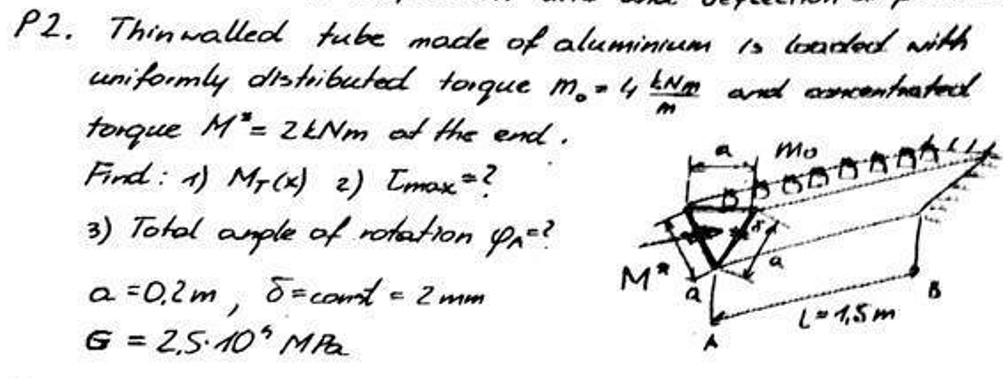 P2. Thinwalled tube made of aluminium is loaded with
uniformly distributed torque m₀ = 4 kNm/m and concentrated
torque M* = 2kNm at the end.
Find: 1) M_T(x) 2) τmax=?
3) Total angle of rotation φ_A=?
a = 0,2m, δ=const = 2mm
G = 2,5·10⁴ MPa
a
m₀
δ
a
M*
a
L=1,5m
A
B